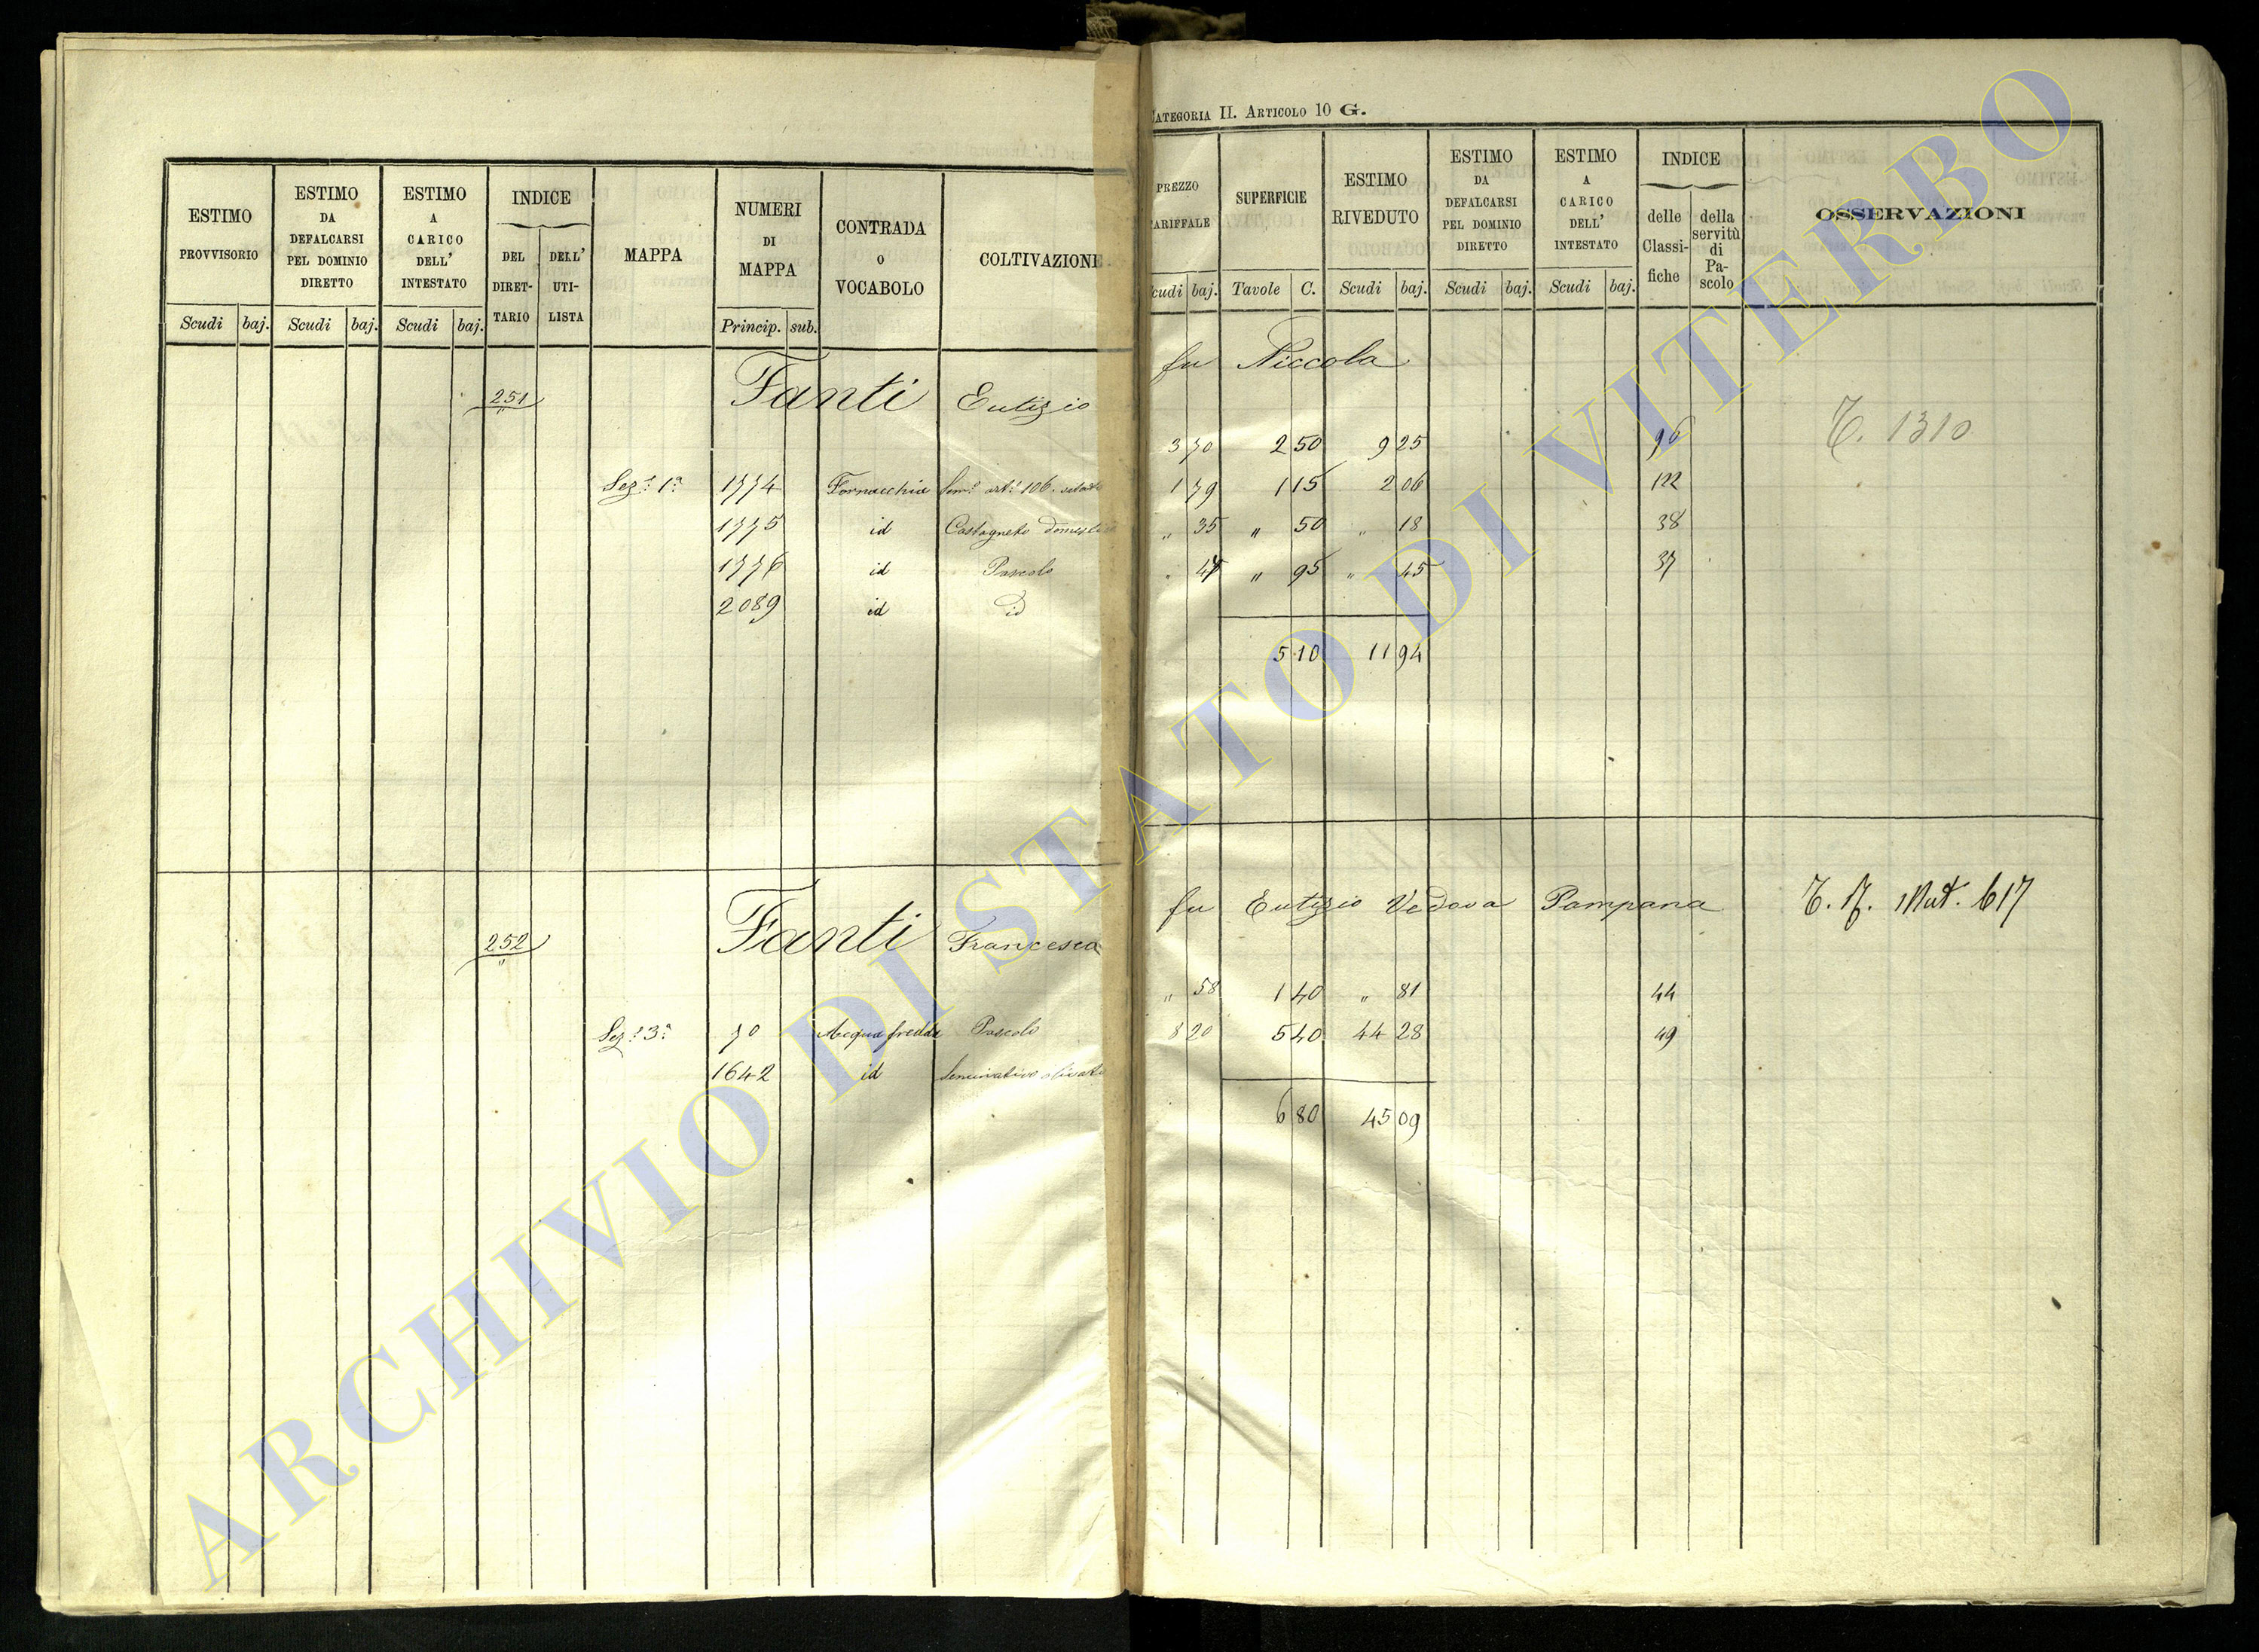 CATEGORIA II. ARTICOLO 10 G.
ESTIMO PROVVISORIO Scudi baj.
ESTIMO DA DEFALCARSI PEL DOMINIO DIRETTO Scudi baj.
ESTIMO A CARICO DELL' INTESTATO Scudi baj.
INDICE DEL DIRET-TARIO DELL' UTI-LISTA
MAPPA
NUMERI DI MAPPA Princip. sub.
CONTRADA O VOCABOLO
COLTIVAZIONE
PREZZO TARIFFALE Scudi baj.
SUPERFICIE Tavole C.
ESTIMO RIVEDUTO Scudi baj.
ESTIMO DA DEFALCARSI PEL DOMINIO DIRETTO Scudi baj.
ESTIMO A CARICO DELL' INTESTATO Scudi baj.
INDICE delle Classi-fiche della servitù di Pa-scolo
OSSERVAZIONI
251 Fanti Eutizio fu Niccola
T. 1310
Sez.e 1a 1774 Fornacchia 3 70 2 50 9 25 96
1775 id Castagneto 1 79 1 15 2 06 122
1776 id Pascolo " 35 " 50 " 18 38
2089 id id " " 95 " 45 37
5 10 11 94
252 Fanti Francesca fu Eutizio Vedova Pampana
Mut. 617
Sez.e 3a 70 Acqua fredda Pascolo " 58 1 40 " 81 44
1642 id Seminativo olivato 8 20 5 40 44 28 49
6 80 45 09
ARCHIVIO DI STATO DI VITERBO